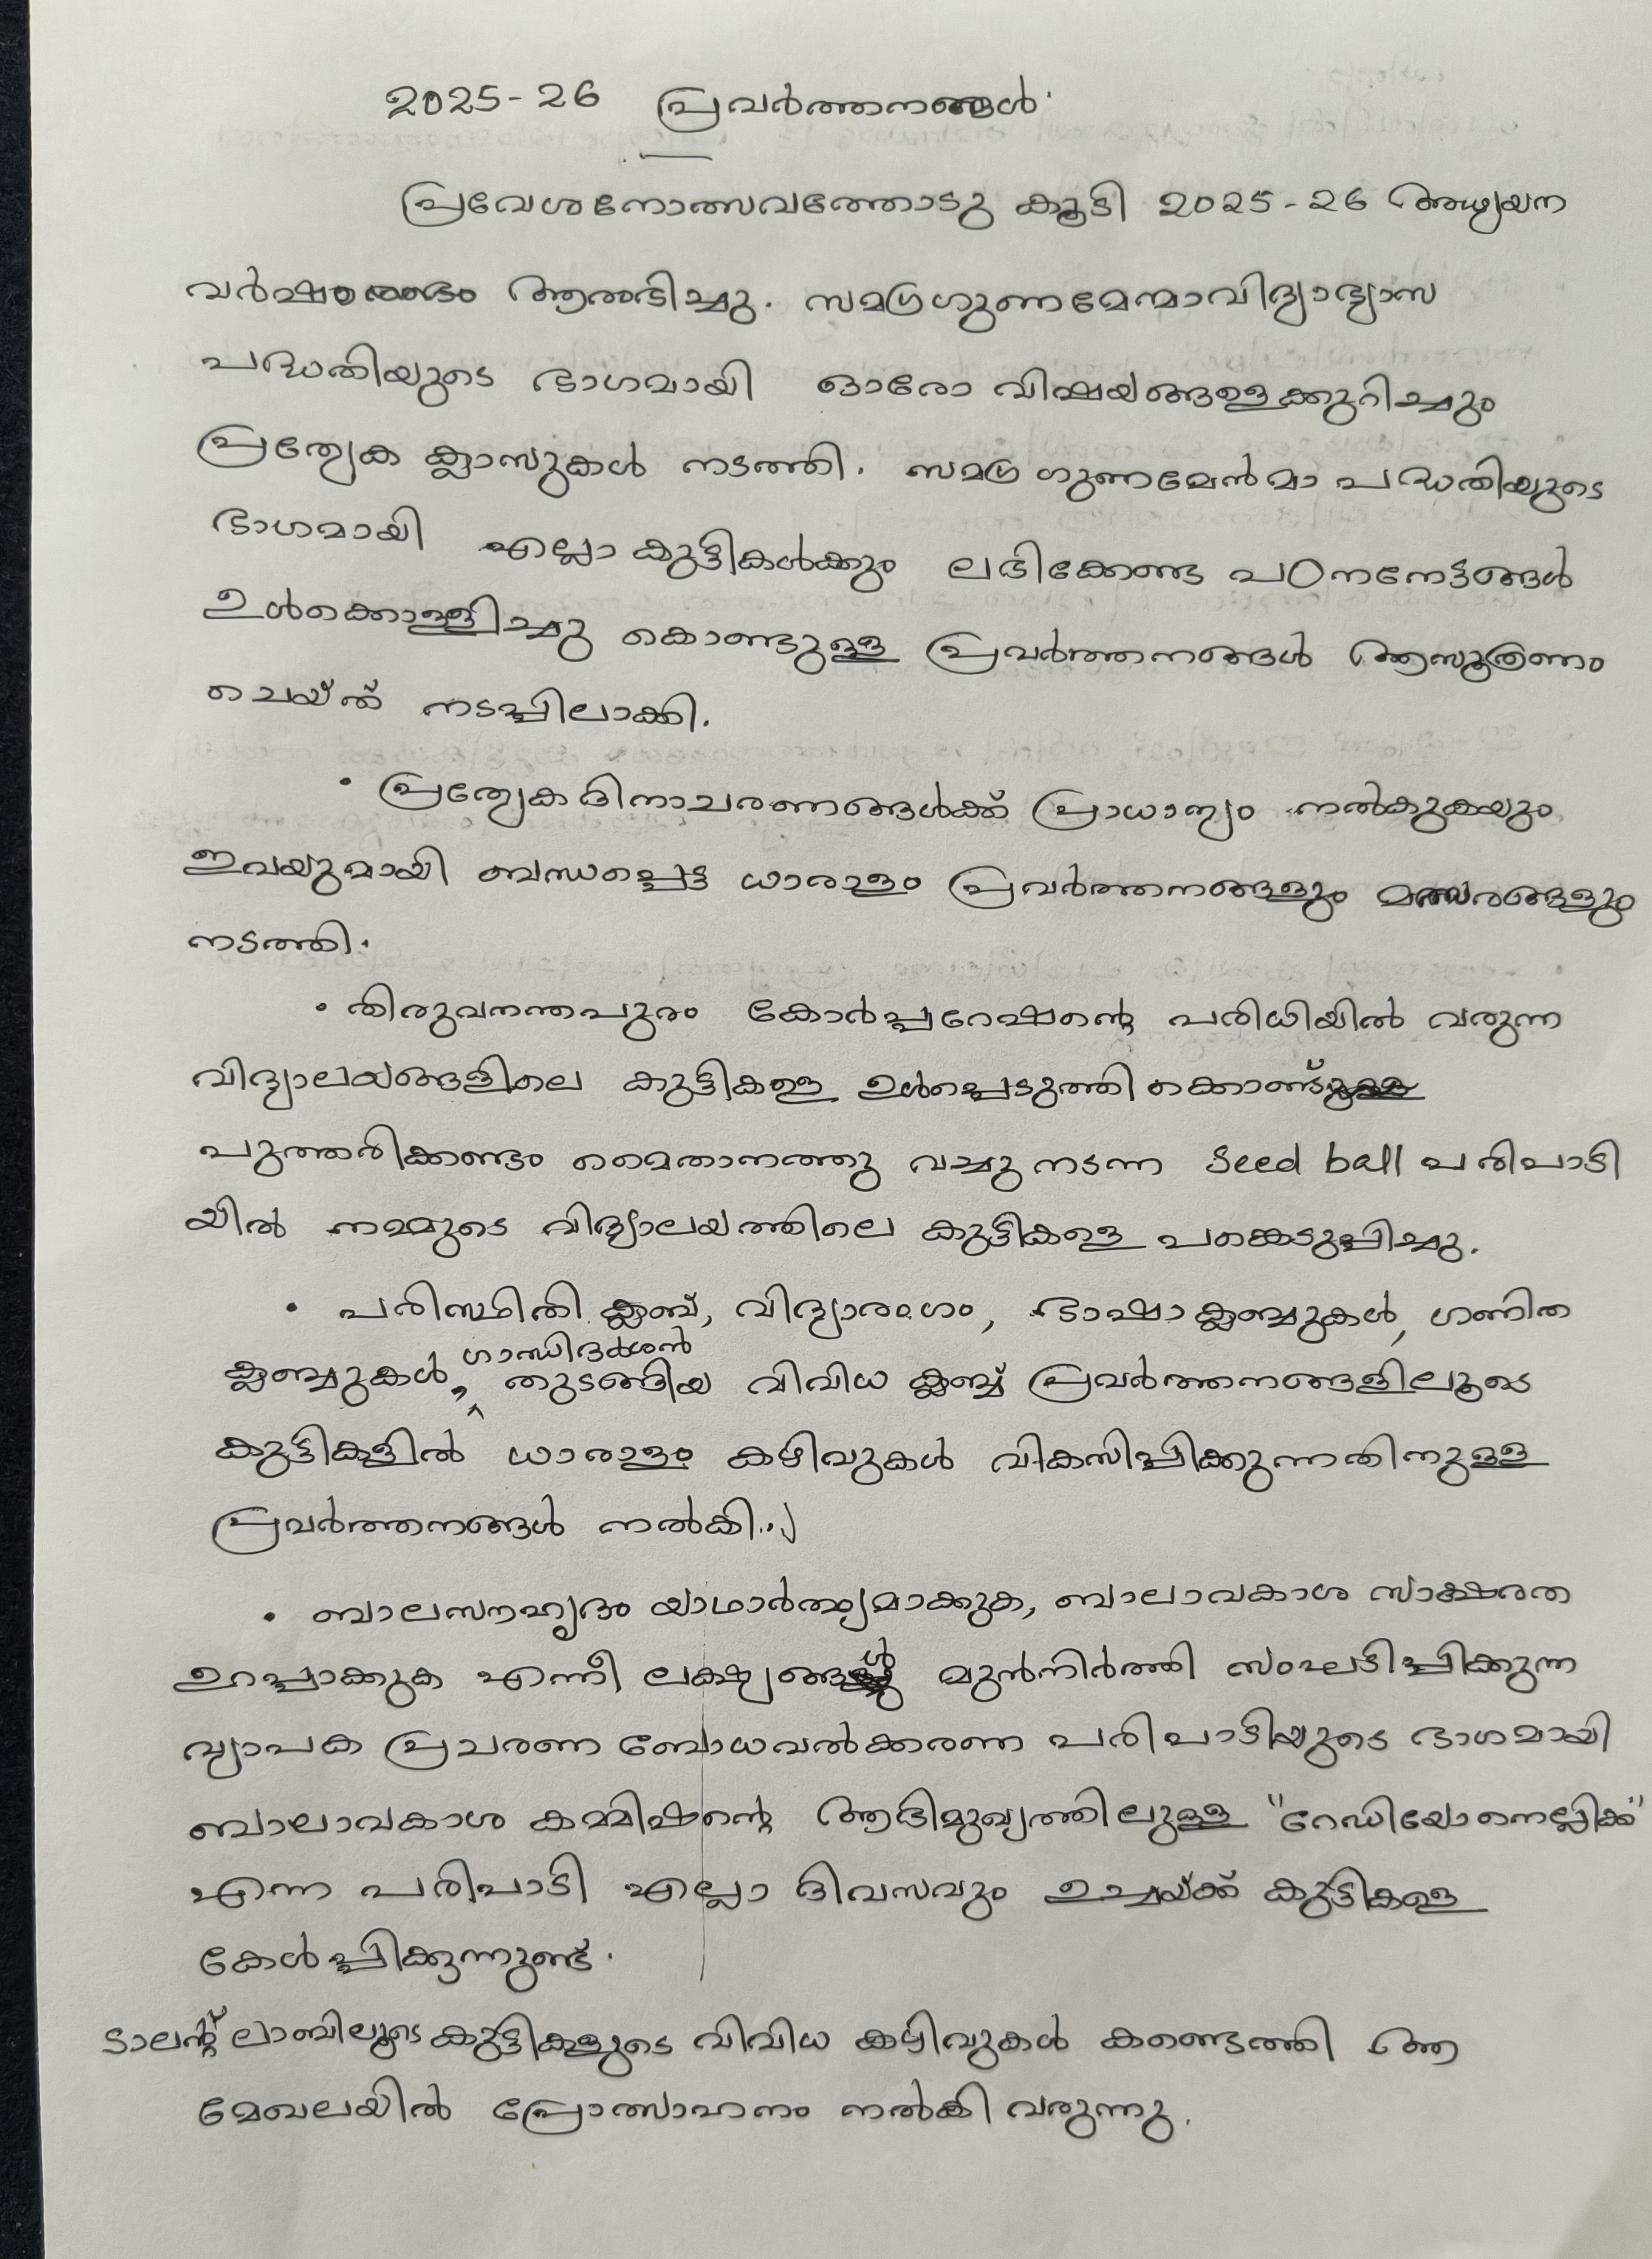 2025-26 പ്രവർത്തനങ്ങൾ
പ്രവേശനോത്സവത്തോടു കൂടി 2025-26 അധ്യയന
വർഷം ആരംഭിച്ചു. സമഗ്രഗുണമേന്മാവിദ്യാഭ്യാസ
പദ്ധതിയുടെ ഭാഗമായി ഓരോ വിഷയങ്ങളെക്കുറിച്ചും
പ്രത്യേക ക്ലാസുകൾ നടത്തി. സമഗ്ര ഗുണമേൻമാ പദ്ധതിയുടെ
ഭാഗമായി എല്ലാ കുട്ടികൾക്കും ലഭിക്കേണ്ട പഠനനേട്ടങ്ങൾ
ഉൾക്കൊള്ളിച്ചു കൊണ്ടുള്ള പ്രവർത്തനങ്ങൾ ആസൂത്രണം
ചെയ്ത് നടപ്പിലാക്കി.
• പ്രത്യേക ദിനാചരണങ്ങൾക്ക് പ്രാധാന്യം നൽകുകയും
ഇവയുമായി ബന്ധപ്പെട്ട ധാരാളം പ്രവർത്തനങ്ങളും മത്സരങ്ങളും
നടത്തി.
• തിരുവനന്തപുരം കോർപ്പറേഷന്റെ പരിധിയിൽ വരുന്ന
വിദ്യാലയങ്ങളിലെ കുട്ടികളെ ഉൾപ്പെടുത്തി ക്കൊണ്ട്
പുത്തരിക്കണ്ടം മൈതാനത്തു വച്ചു നടന്ന Seed ball പരിപാടി
യിൽ നമ്മുടെ വിദ്യാലയത്തിലെ കുട്ടികളെ പങ്കെടുപ്പിച്ചു.
• പരിസ്ഥിതി ക്ലബ്, വിദ്യാരംഗം, ഭാഷാ ക്ലബ്ബുകൾ, ഗണിത
ക്ലബ്ബുകൾ, ഗാന്ധിദർശൻ തുടങ്ങിയ വിവിധ ക്ലബ്ബ് പ്രവർത്തനങ്ങളിലൂടെ
കുട്ടികളിൽ ധാരാളം കഴിവുകൾ വികസിപ്പിക്കുന്നതിനുള്ള
പ്രവർത്തനങ്ങൾ നൽകി.
• ബാലസൗഹൃദം യാഥാർത്ഥ്യമാക്കുക, ബാലാവകാശ സാക്ഷരത
ഉറപ്പാക്കുക എന്നീ ലക്ഷ്യങ്ങൾ മുൻനിർത്തി സംഘടിപ്പിക്കുന്ന
വ്യാപക പ്രചരണ ബോധവൽക്കരണ പരിപാടിയുടെ ഭാഗമായി
ബാലാവകാശ കമ്മിഷന്റെ ആഭിമുഖ്യത്തിലുള്ള "റേഡിയോ നെല്ലിക്ക"
എന്ന പരിപാടി എല്ലാ ദിവസവും ഉച്ചയ്ക്ക് കുട്ടികളെ
കേൾപ്പിക്കുന്നുണ്ട്.
ടാലന്റ് ലാബിലൂടെ കുട്ടികളുടെ വിവിധ കഴിവുകൾ കണ്ടെത്തി ആ
മേഖലയിൽ പ്രോത്സാഹനം നൽകി വരുന്നു.